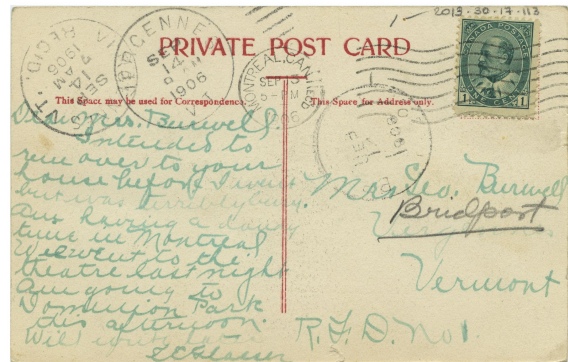 2019.30.17.113
PRIVATE POST CARD
This Space may be used for Correspondence.
This Space for Address only.
VERGENNES
SEP
14
1906
VT
REC'D
SEP
14
AM
1906
MONTREAL, CANADA
SEP
PM
06
CANADA POSTAGE
1 ONE CENT 1
Dear Mrs. Burwell
Intended to
run over to your
house before I went
but was terribly busy.
Am having a dandy
time in Montreal
We went to the
theatre last night
Am going to
Dominion Park
this afternoon.
Will write
Mrs. Geo. Burwell
Bridport
Vermont
R.F.D. No 1.